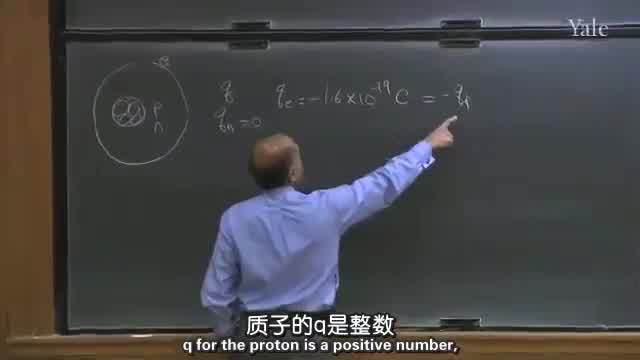 Yale
e
q
qₑ = -1.6 × 10⁻¹⁹ C = -qₚ
P
n
qₙ = 0
质子的q是整数
q for the proton is a positive number,